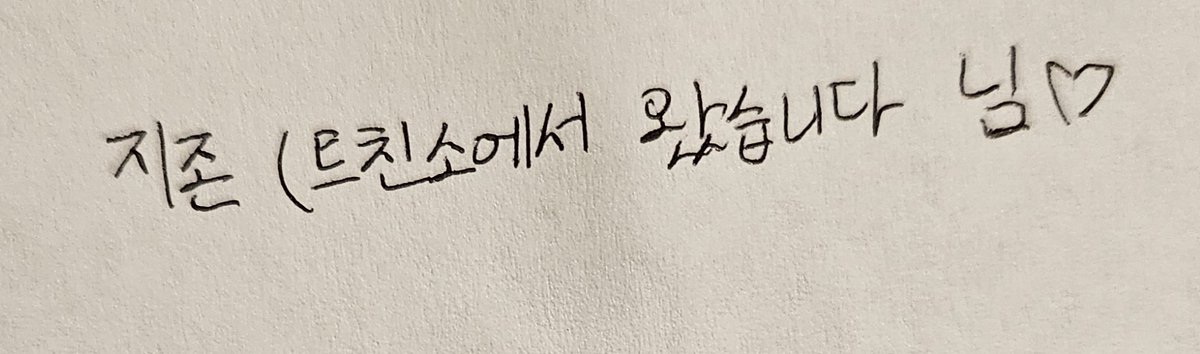 지존 (트친소에서 왔습니다 님♡